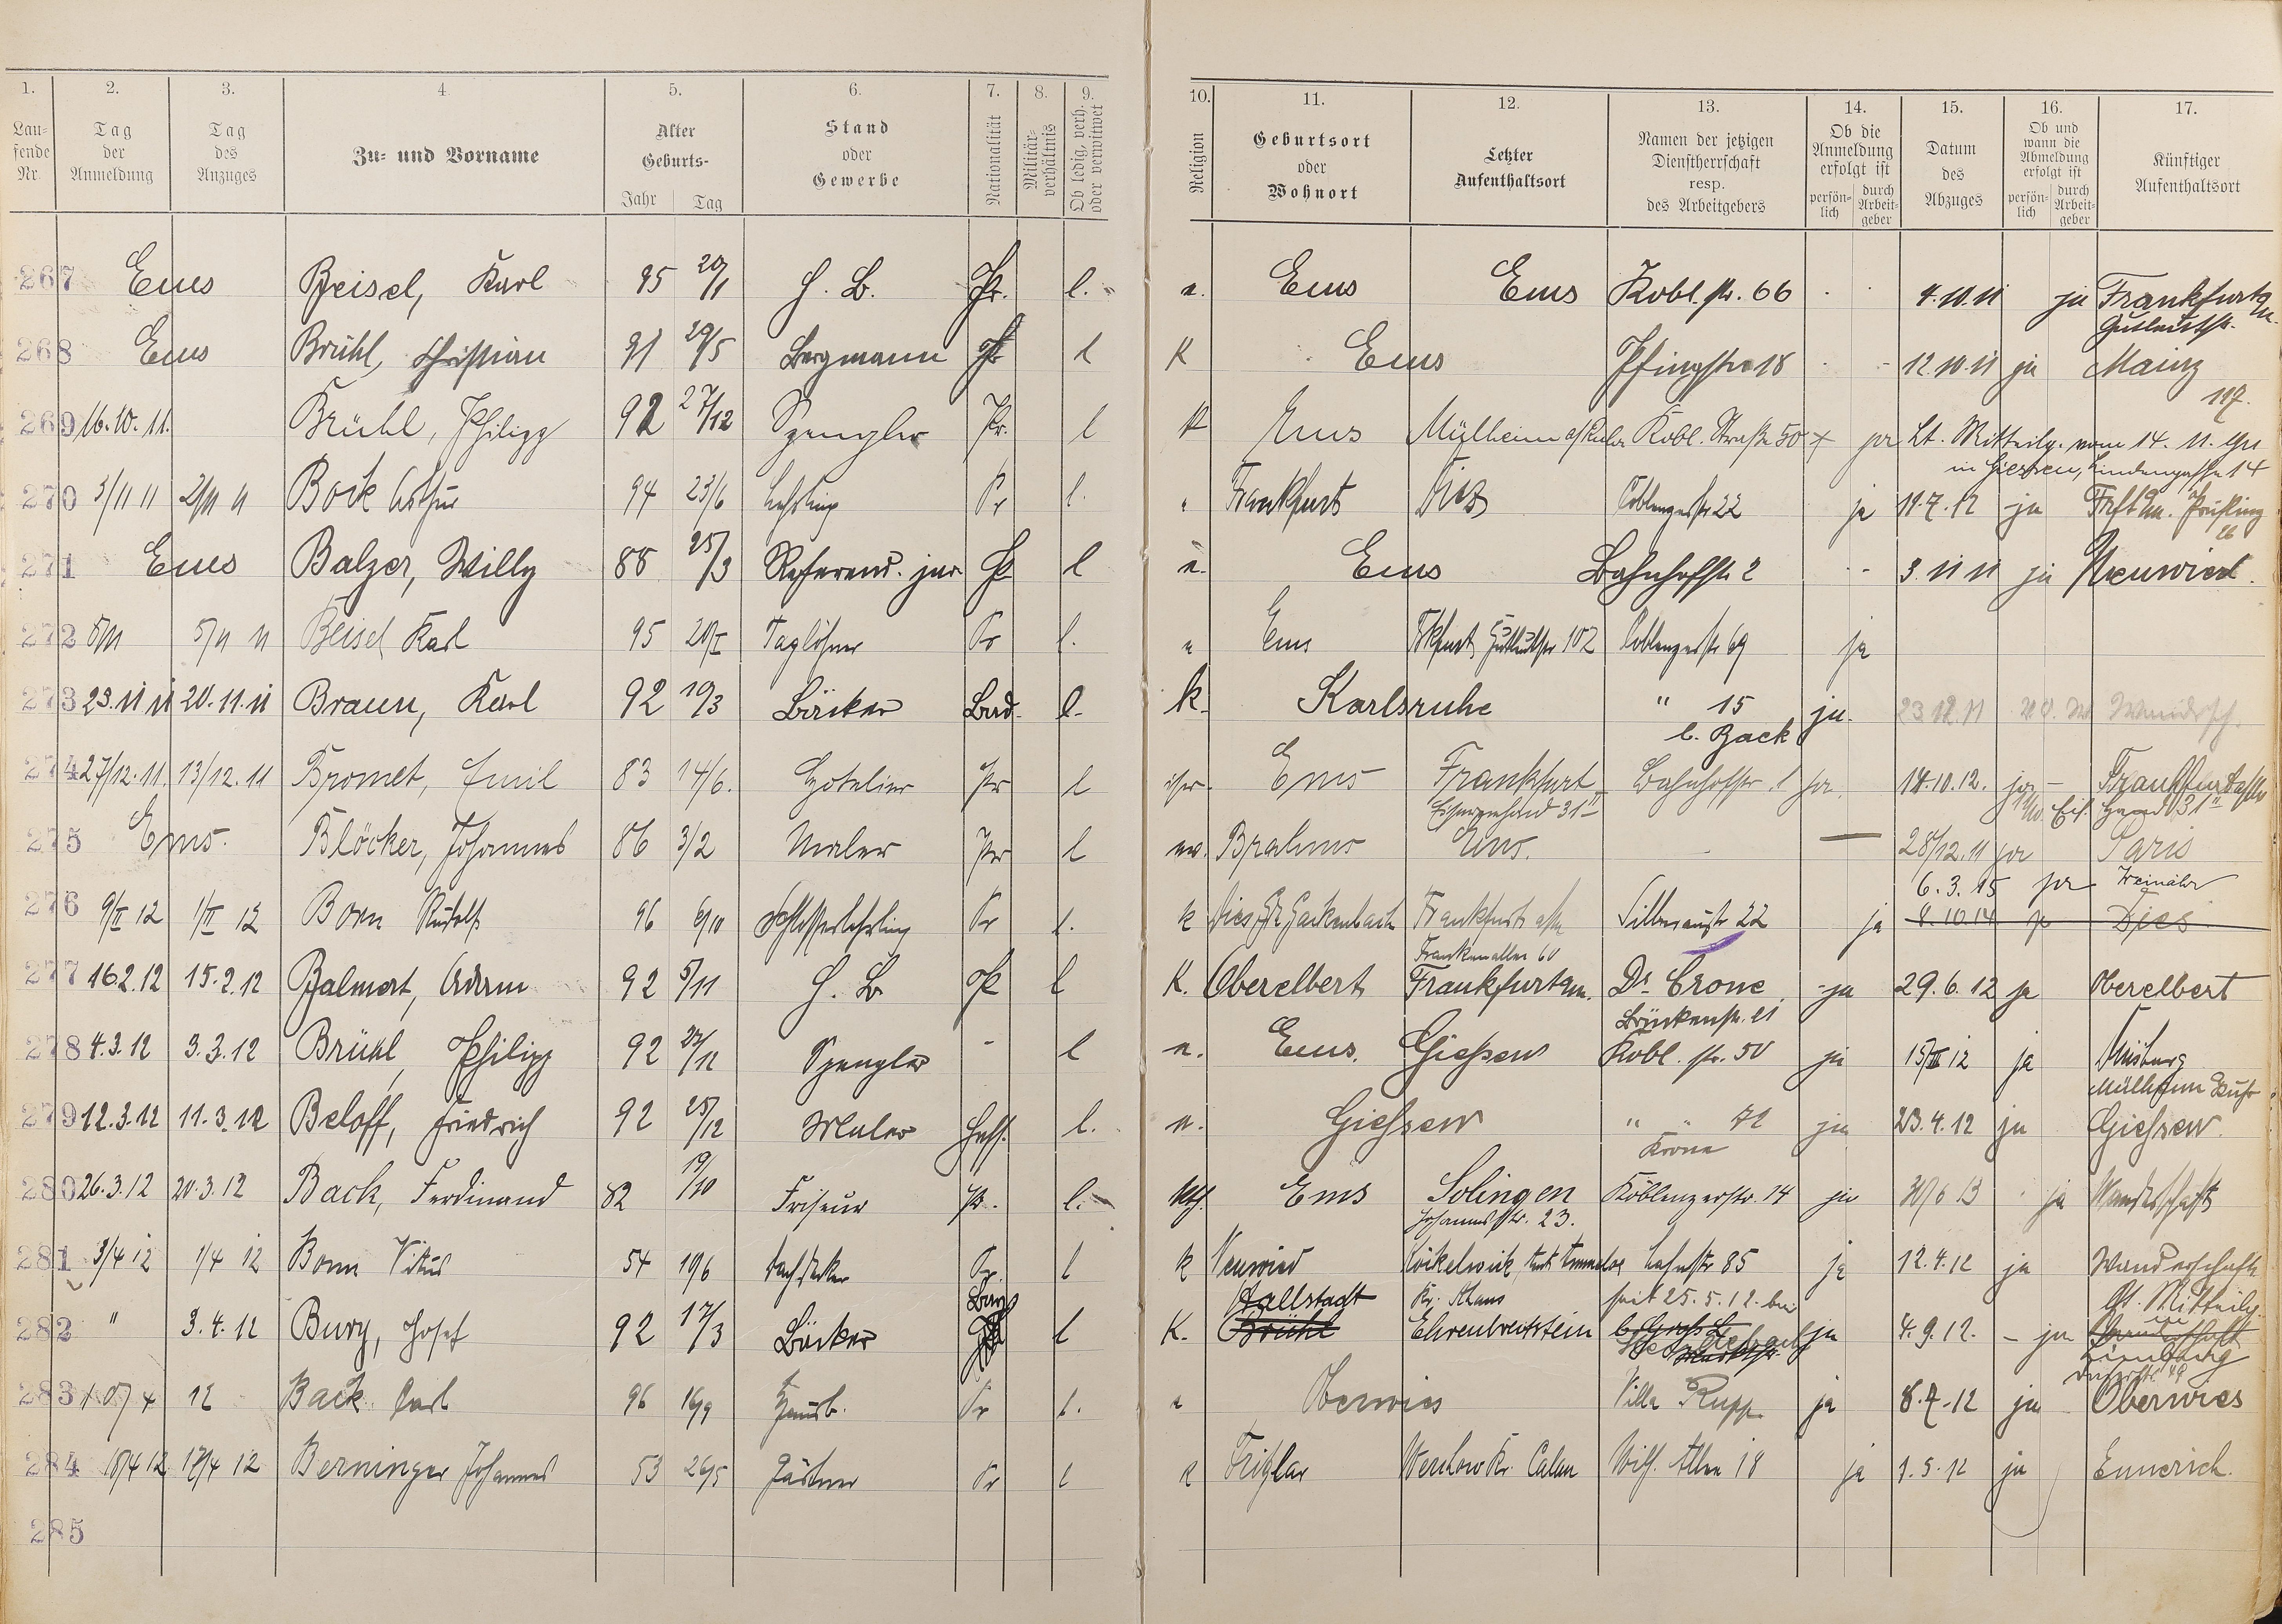 1. 2. 3. 4. 5. 6. 7. 8. 9. 10. 11. 12. 13. 14. 15. 16. 17.
Lau-
fende
Nr.
Tag
der
Anmeldung
Tag
des
Anzuges
Zu- und Vorname
Alter
Geburts-
Jahr Tag
Stand
oder
Gewerbe
Nationalität
Militär-
verhältnis
Ob ledig, verh.
oder verwitwet
Religion
Geburtsort
oder
Wohnort
Letzter
Aufenthaltsort
Namen der jetzigen
Dienstherrschaft
resp.
des Arbeitgebers
Ob die
Anmeldung
erfolgt ist
persön-
lich
durch
Arbeit-
geber
Datum
des
Abzuges
Ob und
wann die
Abmeldung
erfolgt ist
persön-
lich
durch
Arbeit-
geber
Künftiger
Aufenthaltsort
267 Ems Beisel, Karl 95 20/1 H. B. Pr. l. e. Ems Ems Kobl. str. 66 4.10.11 ja Frankfurt a/m.
Gutleutstr.
268 Ems Brühl, Christian 91 29/5 Bergmann Pr l K Ems Pfingstw 18 12.10.11 ja Mainz
117.
269 16.10.11. Brühl, Philipp 92 27/12 Spengler Pr. l K Ems Mülheim a/Ruhr Kobl. Straße 50 + ja Lt. Mitteilg. vom 14. 11.
in Giessen, Lindengasse 14
270 3/11 11 2/11 11 Bock Arthur 94 23/6 Lehrling Pr l. Frankfurt Coblenzerstr 22 ja 11.7.12 ja Frkft a/m.
271 Ems Balzer, Willy 88 25/3 Referend. jur. Pr l e. Ems Bahnhofstr 2 3.11 11 ja Neuwied.
272 5/11 5/11 11 Beisel Karl 95 20/I Taglöhner Pr l. e Ems Frkfurt Gutleutstr 102 Coblenzerstr 69 ja
273 23.11 11 20.11.11 Braun, Karl 92 10/3 Bäcker Bad. l. k. Karlsruhe " 15 ja. 23.12.11
b. Back
274 27/12.11. 13/12.11 Bromet, Emil 83 14/6. Hotelier Pr l isr. Ems Frankfurt Bahnhofstr. 1 ja. 14.10.12. ja Frankfurt a/M
Eisernehand 31 II Eis. Hand 31 II
275 Ems. Blöcker, Johannes 86 3/2 Maler Pr l ev. Brahms Ems. 28/12.11 ja Paris
6.3.15 ja Weinähr
276 9/II 12 1/II 12 Born Rudolf 96 6/10 Schlosserlehrling Pr l. k Dies, Gackenbach Frankfurt a/m Silberaustr 22 ja 8.10.14 ja Dies
Frankenallee 60
277 16.2.12 15.2.12 Balmert, Adam 92 5/11 H. B. Pr l K. Oberelbert Frankfurt a/m. Dr. Crone ja 29.6.12 ja Oberelbert
Brückenstr. 21
278 4.3.12 3.3.12 Brühl, Philipp 92 27/12 Spengler - l Ems. Giessen Kobl. str. 50 ja 15/III 12 ja Duisburg
Mülheim Ruhr
279 12.3.12 11.3.12 Beloff, Friedrich 92 25/12 Maler Hess. l. Giessen " " 71 ja 23.4.12 ja Giessen.
Krone
280 26.3.12 20.3.12 Back, Ferdinand 82 19/10 Friseur Pr. l. Ems Solingen Koblenzerstr. 14 ja 30/6 13 ja Wanderschaft
Johannesstr. 23.
281 3/4 12 1/4 12 Bonn Vitus 54 10/6 Dachdecker Pr. l k Neuwied Lahnstr 85 ja 12.4.12 ja Wanderschaft
Bay. Hallstadt Kr. Ahaus seit 25.5.12. bei Lt. Mitteilg.
282 " 3.4.12 Bury, Josef 92 17/3 Bäcker l K. Brühl Ehrenbreitstein ja 4.9.12. - ja Limburg
283 10/4 12 Back Carl 96 16/9 Hausb. Pr l. e Oberwies Villa Rupp ja 8.7.12 ja Oberwies
284 18/4 12 17/4 12 Berninger Johannes 53 26/5 Gärtner Pr l e Fritzlar Werchow Kr. Calau Wilh. Allee 18 ja 1.5.12 ja Emmerich.
285